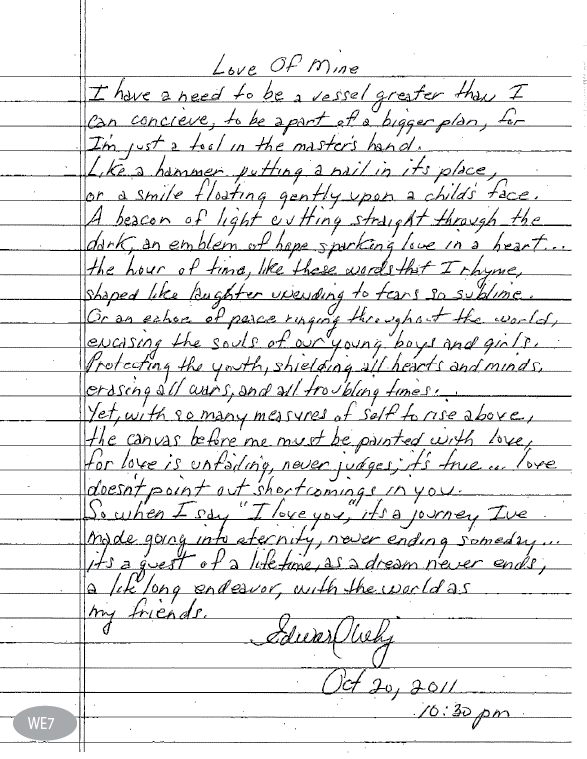 Love Of Mine
I have a need to be a vessel greater than I
can concieve, to be apart of a bigger plan, for
I'm just a tool in the master's hand.
Like a hammer putting a nail in its place,
or a smile floating gently upon a child's face.
A beacon of light cutting straight through the
dark, an emblem of hope sparking love in a heart...
the hour of time, like these words that I rhyme,
shaped like laughter to tears so sublime.
Or an echoe of peace ringing throughout the world,
encasing the souls of our young boys and girls.
Protecting the youth, shielding all hearts and minds,
erasing all wars, and all troubling times.
Yet, with so many measures of self to rise above,
the canvas before me must be painted with love,
for love is unfailing, never judges; it's true... love
doesn't point out shortcomings in you.
So when I say "I love you," it's a journey I've
made going into eternity, never ending someday...
it's a quest of a lifetime, as a dream never ends,
a life long endeavor, with the world as
my friends.
Oct 20, 2011
10:30 pm
WE7